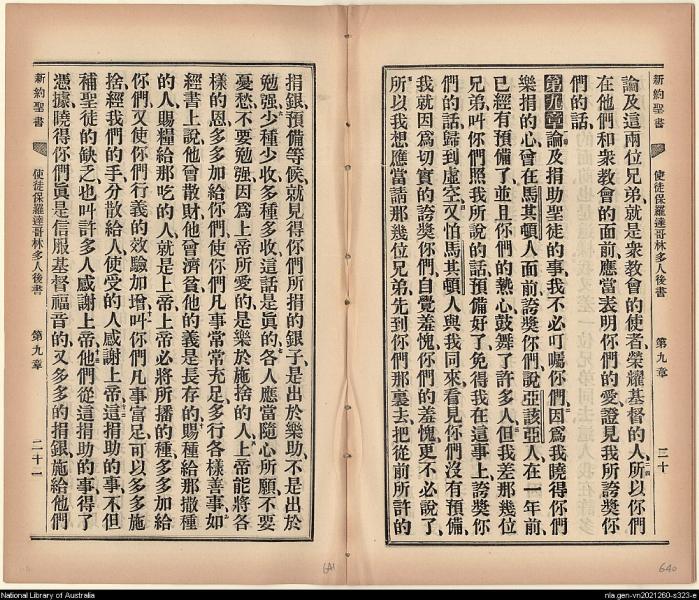 新約聖書 使徒保羅達哥林多人後書 第九章 二十
論及這兩位兄弟、就是衆教會的使者、榮耀基督的人、所以你們
在他們和衆教會的面前、應當表明你們的愛、證見我所誇獎你
們的話、
第九章論及捐助聖徒的事、我不必叮囑你們、因爲我曉得你們
樂捐的心、曾在馬其頓人面前、誇獎你們、說亞該亞人在一年前、
已經有預備了、並且你們的熱心、鼓舞了許多人、但我差那幾位
兄弟、叫你們照我所說的話預備好了、免得我在這事上、誇獎你
們的話歸到虛空、又怕馬其頓人與我同來、看見你們沒有預備、
我就因爲切實的誇獎你們、自覺羞愧、你們的羞愧、更不必說了、
所以我想應當請那幾位兄弟、先到你們那裏去、把從前所許的
捐銀、預備等候、就見得你們所捐的銀子、是出於樂助、不是出於
勉强、少種少收、多種多收、這話是眞的、各人應當隨心所願、不要
憂愁、不要勉强、因爲上帝所愛的、是樂於施捨的人、上帝能將各
樣的恩、多多加給你們、使你們凡事常常充足、多行各樣善事、如
經書上說、他曾散財、他曾濟貧、他的義是長存的、賜種給那撒種
的人、賜糧給那吃的人、就是上帝、上帝必將所播的種、多多加給
你們、又使你們行義的效驗加增、叫你們凡事富足、可以多多施
捨、經我們的手、分散給人、使受的人感謝上帝、這捐助的事、不但
補聖徒的缺乏、也叫許多人感謝上帝、他們從這捐助的事、得了
憑據、曉得你們眞是信服基督福音的、又多多的捐銀、施給他們
新約聖書 使徒保羅達哥林多人後書 第九章 二十一
641
640
National Library of Australia
nla.gen-vn2021260-s323-e